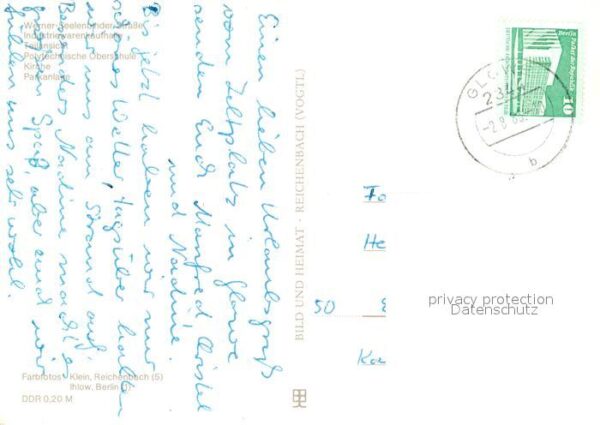 Werner-Seelenbinder-Straße
Industriewarenkaufhalle
Teilansicht
Polytechnische Oberschule
Kirche
Parkanlage
Einen lieben Urlaubsgruß
vom Zeltplatz in Glowe
senden Euch Manfred Christel
und Nadine.
Bis jetzt haben wir nur
schönes Wetter, tagsüber halten
wir uns am Strand auf.
Besonders Nadine macht es
großen Spaß, aber auch wir
fühlen uns sehr wohl.
BILD UND HEIMAT · REICHENBACH (VOGTL)
Farbfotos: Klein, Reichenbach (5)
Ihlow, Berlin
DDR 0,20 M
Berlin Palast der Republik
10
GLO
234
-2.8.
b
Fa
He
50
Ka
privacy protection
Datenschutz